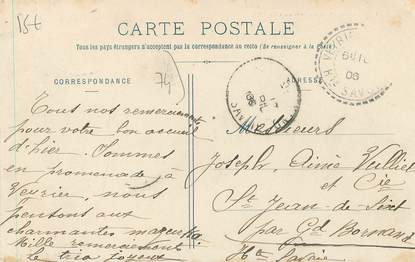 15t
CARTE POSTALE
Tous les pays étrangers n'acceptent pas la correspondance au recto (Se renseigner à la Poste).
CORRESPONDANCE
ADRESSE
74
VEYRIER
06
SAVOIE
Tous nos remerciements
pour votre bon accueil
d'hier. Sommes
en promenade à
Veyrier, nous
pensons aux
charmantes mazurka.
Mille remerciement
le trio joyeux
Messieurs
Joseph, Aimé Vulliet
et Cie
St Jean-de-Sixt
par Gd Bornand
Hte Savoie